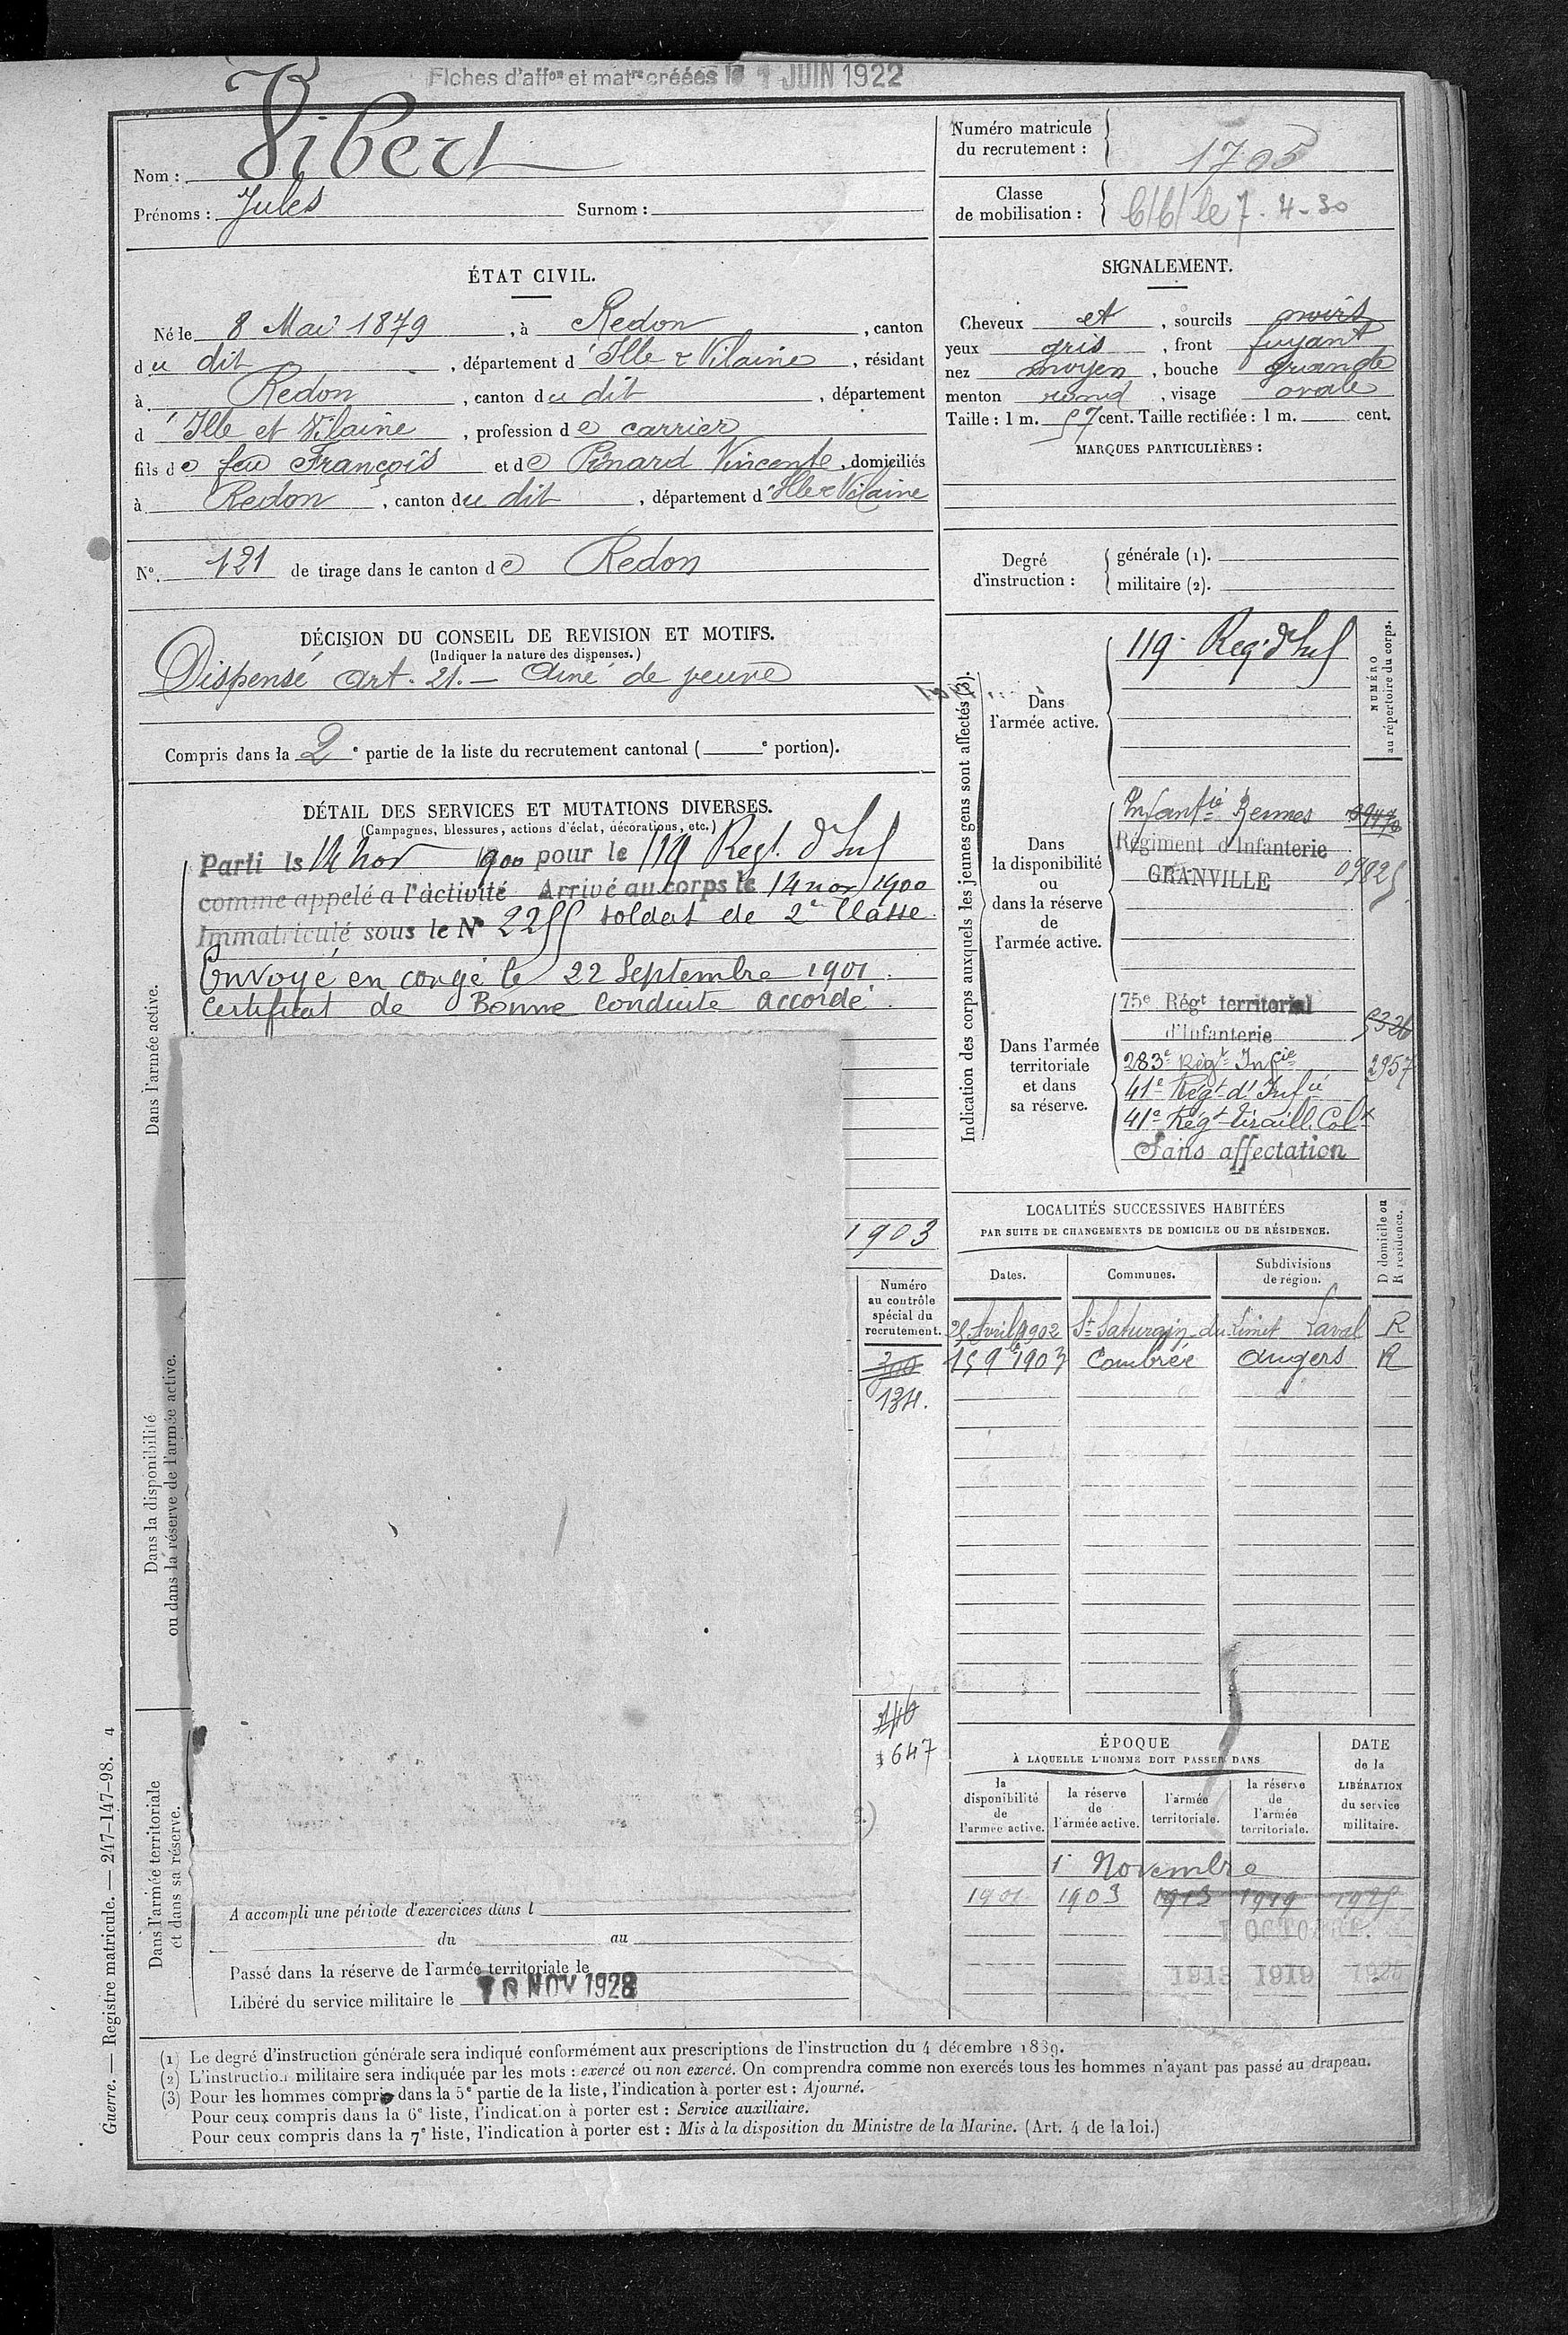 Fiches d'affon et matre créées le 1 JUIN 1922
Nom : Vibert
Prénoms : Jules Surnom :
Numéro matricule du recrutement : 1705
Classe de mobilisation : le 7-4-30
ÉTAT CIVIL.
Né le 8 Mai 1879, à Redon, canton
du dit, département d'Ille & Vilaine, résidant
à Redon, canton du dit, département
d'Ille et Vilaine, profession de carrier
fils de feu François et de Pinard Vincente, domiciliés
à Redon, canton du dit, département d'Ille & Vilaine
No. 121 de tirage dans le canton de Redon
SIGNALEMENT.
Cheveux et, sourcils noirs
yeux gris, front fuyant
nez moyen, bouche grande
menton rond, visage ovale
Taille : 1 m. 57 cent. Taille rectifiée : 1 m. cent.
MARQUES PARTICULIÈRES :
Degré d'instruction : générale (1).
militaire (2).
DÉCISION DU CONSEIL DE REVISION ET MOTIFS.
(Indiquer la nature des dispenses.)
Dispensé Art. 21. — Ainé de veuve
Compris dans la 2e partie de la liste du recrutement cantonal ( e portion).
DÉTAIL DES SERVICES ET MUTATIONS DIVERSES.
(Campagnes, blessures, actions d'éclat, décorations, etc.)
Dans l'armée active.
Parti le 14 nov 1900 pour le 119 Regt. d'Inf
comme appelé a l'activité Arrivé au corps le 14 nov 1900
Immatriculé sous le No 2255 soldat de 2e Classe.
Envoyé en congé le 22 Septembre 1901.
Certificat de Bonne Conduite accordé.
1903
Dans la disponibilité
ou dans la réserve de l'armée active.
Numéro
au contrôle
spécial du
recrutement.
300
134.
Dans l'armée territoriale
et dans sa réserve.
140
1647
A accompli une période d'exercices dans l
du au
Passé dans la réserve de l'armée territoriale le
Libéré du service militaire le 10 NOV 1928
Indication des corps auxquels les jeunes gens sont affectés (3).
NUMÉRO
au répertoire du corps.
Dans
l'armée active.
119e Reg. d'Inf
Dans
la disponibilité
ou
dans la réserve
de
l'armée active.
Infantie Rennes
Régiment d'Infanterie
GRANVILLE 09825
Dans l'armée
territoriale
et dans
sa réserve.
75e Régt territorial
d'Infanterie 5326
283e Régt Infie 2957
41e Régt d'Infie
41e Régt tiraill. Colx
Sans affectation
LOCALITÉS SUCCESSIVES HABITÉES
PAR SUITE DE CHANGEMENTS DE DOMICILE OU DE RÉSIDENCE.
Dates. Communes. Subdivisions de région. D domicile ou R résidence.
25 Avril 1902 St Saturnin du Limet Laval R
15 9bre 1903 Combrée Angers R
ÉPOQUE
À LAQUELLE L'HOMME DOIT PASSER DANS
la disponibilité de l'armée active.
la réserve de l'armée active.
l'armée territoriale.
la réserve de l'armée territoriale.
DATE de la LIBÉRATION du service militaire.
1er Novembre
1901 1903 1913 1919 1925
1 OCTOBRE.
1913 1919 1926
(1) Le degré d'instruction générale sera indiqué conformément aux prescriptions de l'instruction du 4 décembre 1889.
(2) L'instruction militaire sera indiquée par les mots : exercé ou non exercé. On comprendra comme non exercés tous les hommes n'ayant pas passé au drapeau.
(3) Pour les hommes compris dans la 5e partie de la liste, l'indication à porter est : Ajourné.
Pour ceux compris dans la 6e liste, l'indication à porter est : Service auxiliaire.
Pour ceux compris dans la 7e liste, l'indication à porter est : Mis à la disposition du Ministre de la Marine. (Art. 4 de la loi.)
Guerre. — Registre matricule. — 247-147-98. 4